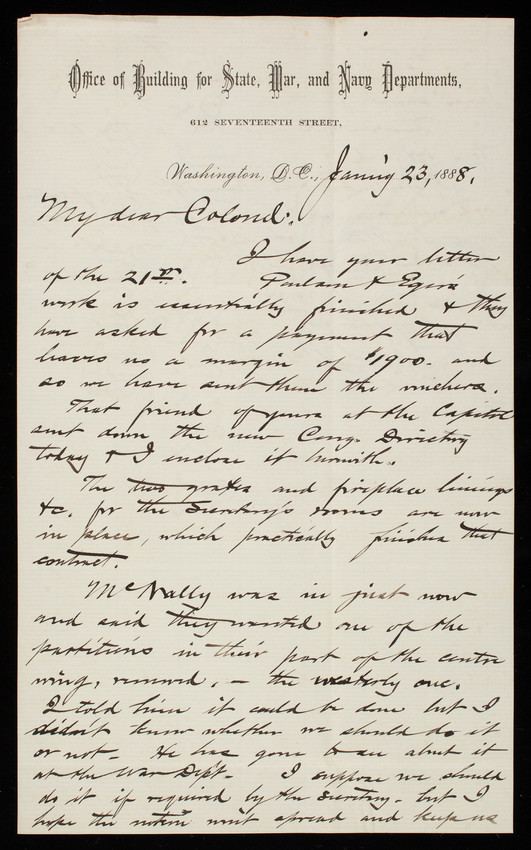 Office of Building for State, War, and Navy Departments,
612 SEVENTEENTH STREET,
Washington, D.C., Jan'y 23, 1888.
My dear Colonel:
I have your letter
of the 21st. Poulson & Eger's
work is essentially finished & they
have asked for a payment that
leaves us a margin of $1900- and
so we have sent them the vouchers.
That friend of yours at the Capitol
sent down the new Cong. Directory
today & I enclose it herewith.
The two grates and fireplace linings
&c. for the Secretary's rooms are now
in place, which practically finishes that
contract.
McNally was in just now
and said they wanted one of the
partitions in their part of the centre
wing, removed, - the westerly one.
I told him it could be done but I
didn't know whether we should do it
or not - He has gone to see about it
at the War Dept - I suppose we should
do it if required by the Secretary - but I
hope the notion won't spread and keep us